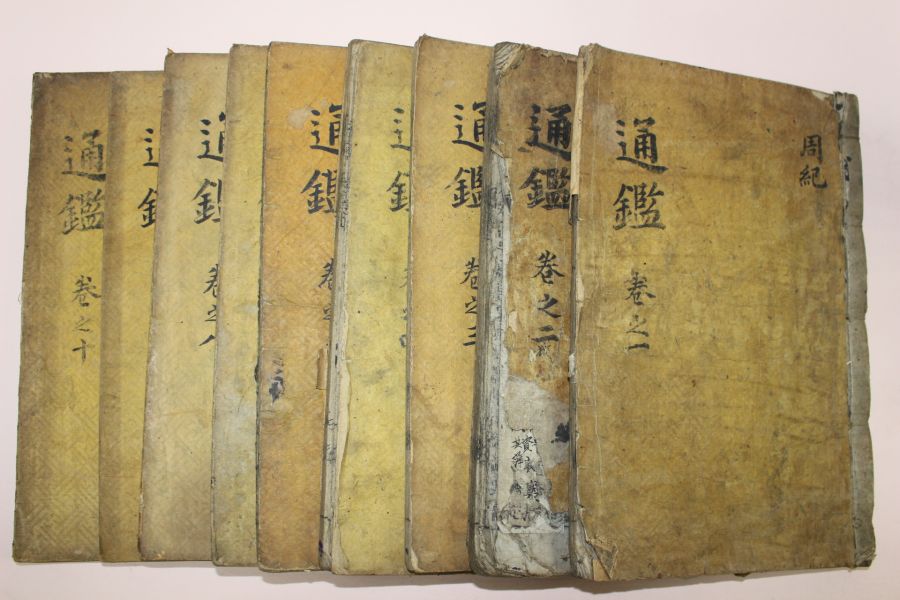 周紀
通鑑
卷之一
通鑑
卷之二
通鑑
卷之三
通鑑
通鑑
卷之
通鑑
卷之八
通鑑
通鑑
卷之十